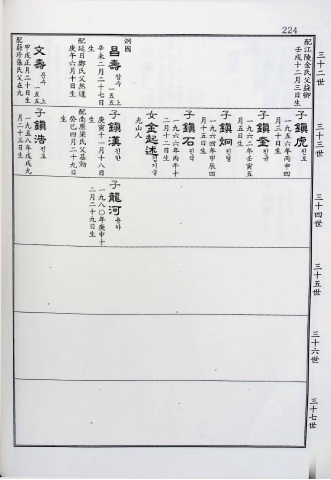 224
三十二世
三十三世
三十四世
三十五世
三十六世
三十七世
配江陵金氏父益卿
壬戌十二月三日生
子鎮虎 진호
一九五六年丙申四
月三十日生
子鎮奎 진규
一九六二年壬寅五
月五日生
子鎮炯 진형
一九六四年甲辰四
月十五日生
子鎮石 진석
一九六六年丙午十
二月十二日生
女金起述 김기술
光山人
洞圓
昌壽 창수 一五五上
辛未二月二十七日
生
配延日鄭氏父然達
庚午六月十日生
子鎮漢 진한
庚寅十一月十八日
生
配南原梁氏父基勳
癸巳四月二十九日
生
子龍河 용하
一九八〇年庚申十
二月二十九日生
文壽 문수 一五五上
甲戌正月二十日生
配蔚珍張氏父在九
子鎮浩 진호
一九五八年戊戌九
月二十三日生